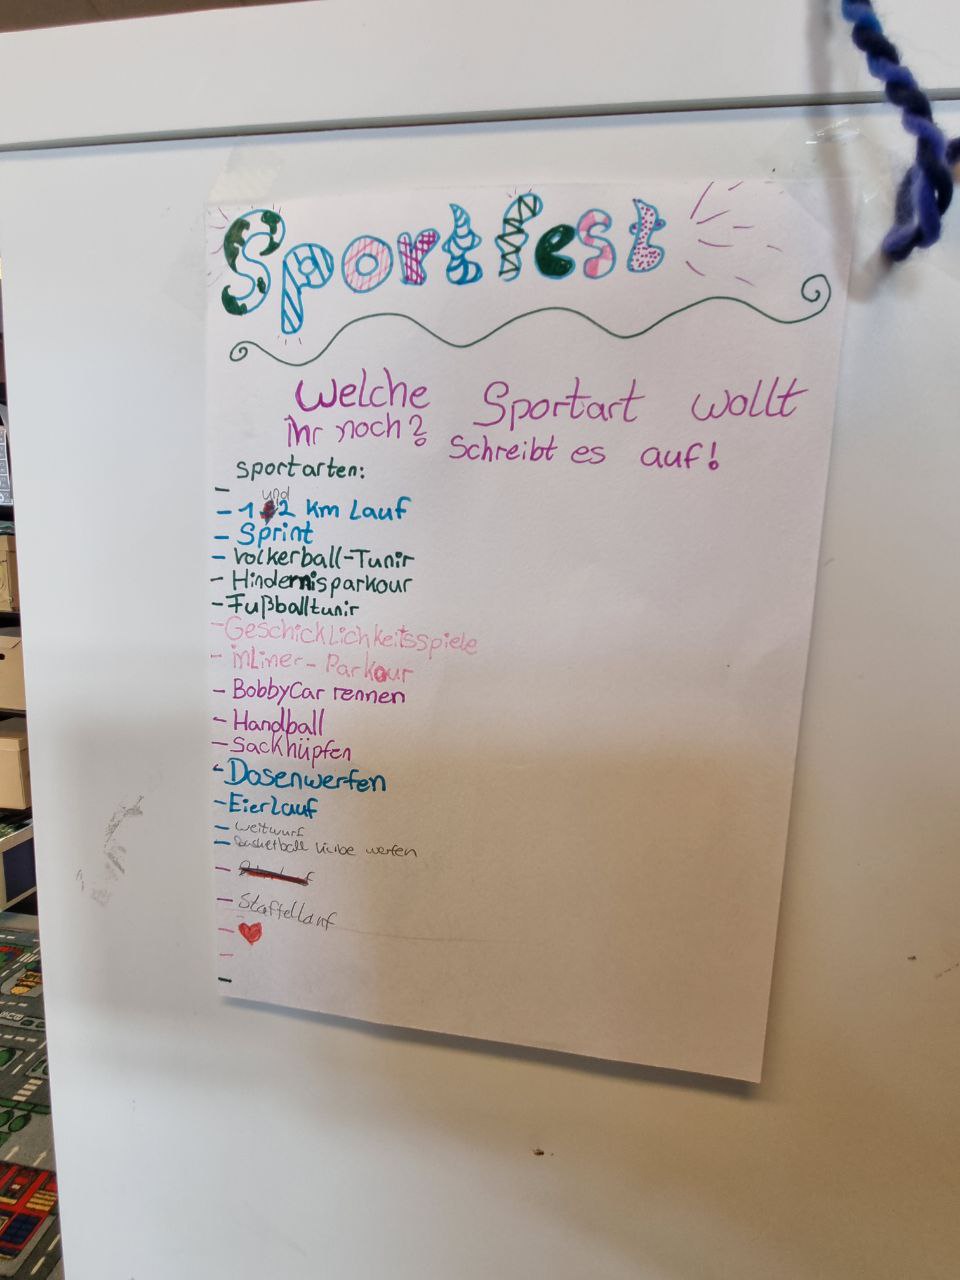 Sportfest
Welche Sportart wollt
ihr noch? Schreibt es auf!
Sportarten:
-
und
- 1 2 km Lauf
- Sprint
- Volkerball-Tunir
- Hindernisparkour
- Fußballtunir
- Geschicklichkeitsspiele
- inliner-Parkour
- BobbyCar rennen
- Handball
- Sackhüpfen
- Dosenwerfen
- Eierlauf
- weitwurf
- Basketball werfen
-
- Staffellauf
- ❤
-
-